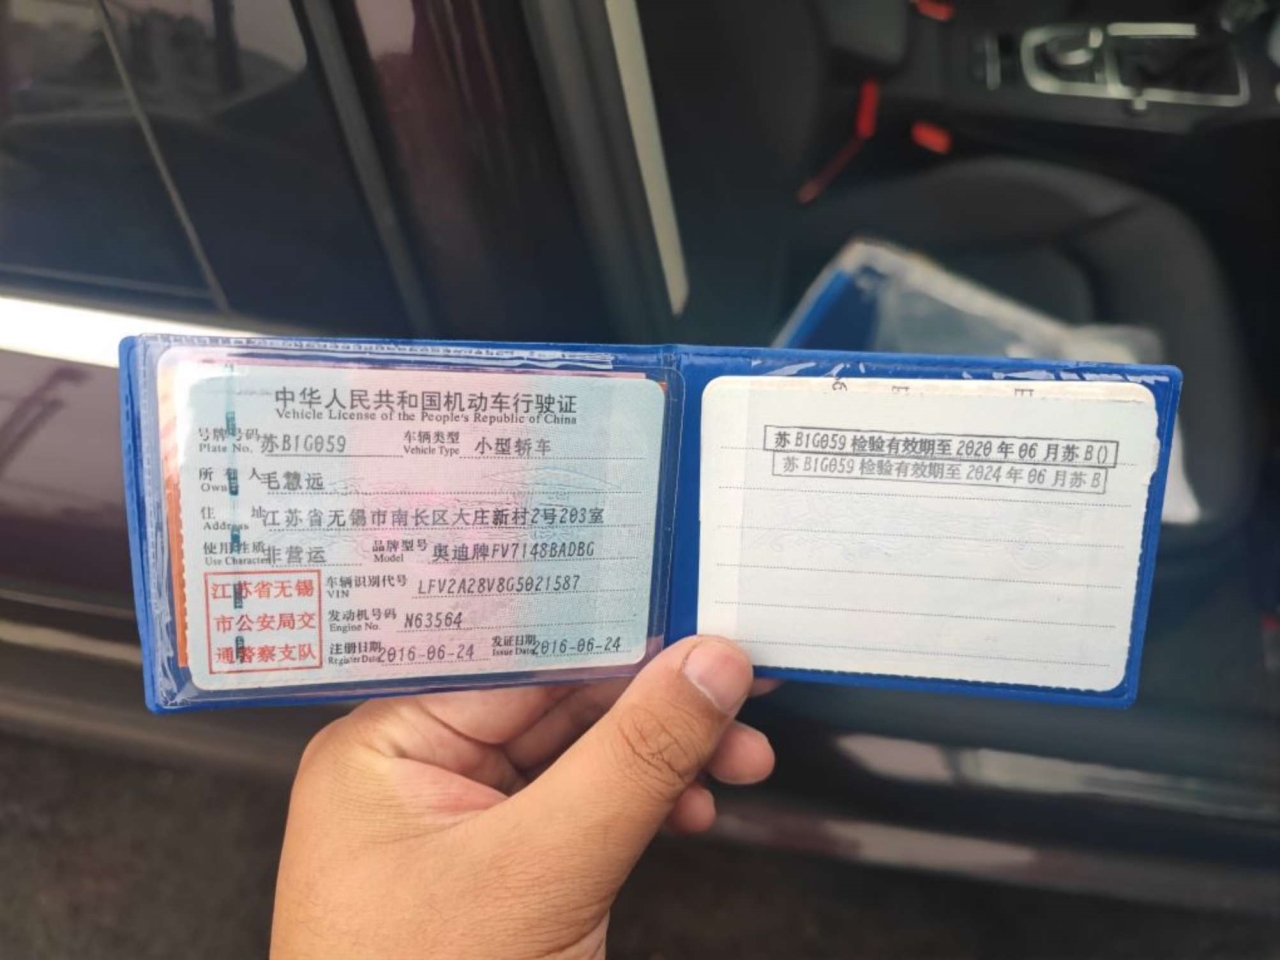 中华人民共和国机动车行驶证
Vehicle License of the People's Republic of China
号牌号码 苏B1G059 车辆类型 小型轿车
Plate No. Vehicle Type
所有人 毛慧远
Owner
住址 江苏省无锡市南长区大庄新村2号203室
Address
使用性质 非营运 品牌型号 奥迪牌FV7148BADBG
Use Character Model
江苏省无锡
市公安局交
通警察支队
车辆识别代号 LFV2A28V8G5021587
VIN
发动机号码 N63564
Engine No.
注册日期 2016-06-24 发证日期 2016-06-24
Register Date Issue Date
苏B1G059检验有效期至2020年06月苏B()
苏B1G059检验有效期至2024年06月苏B